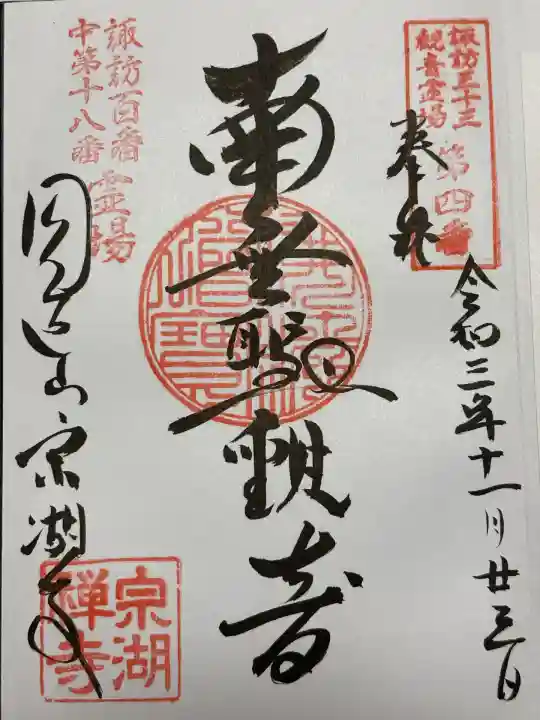 諏訪三十三
観音霊場
第四番
奉拝
令和三年十一月廿三日
南無聖観音
諏訪百番霊場
中第十八番
圓通山宗湖寺
宗湖
禅寺